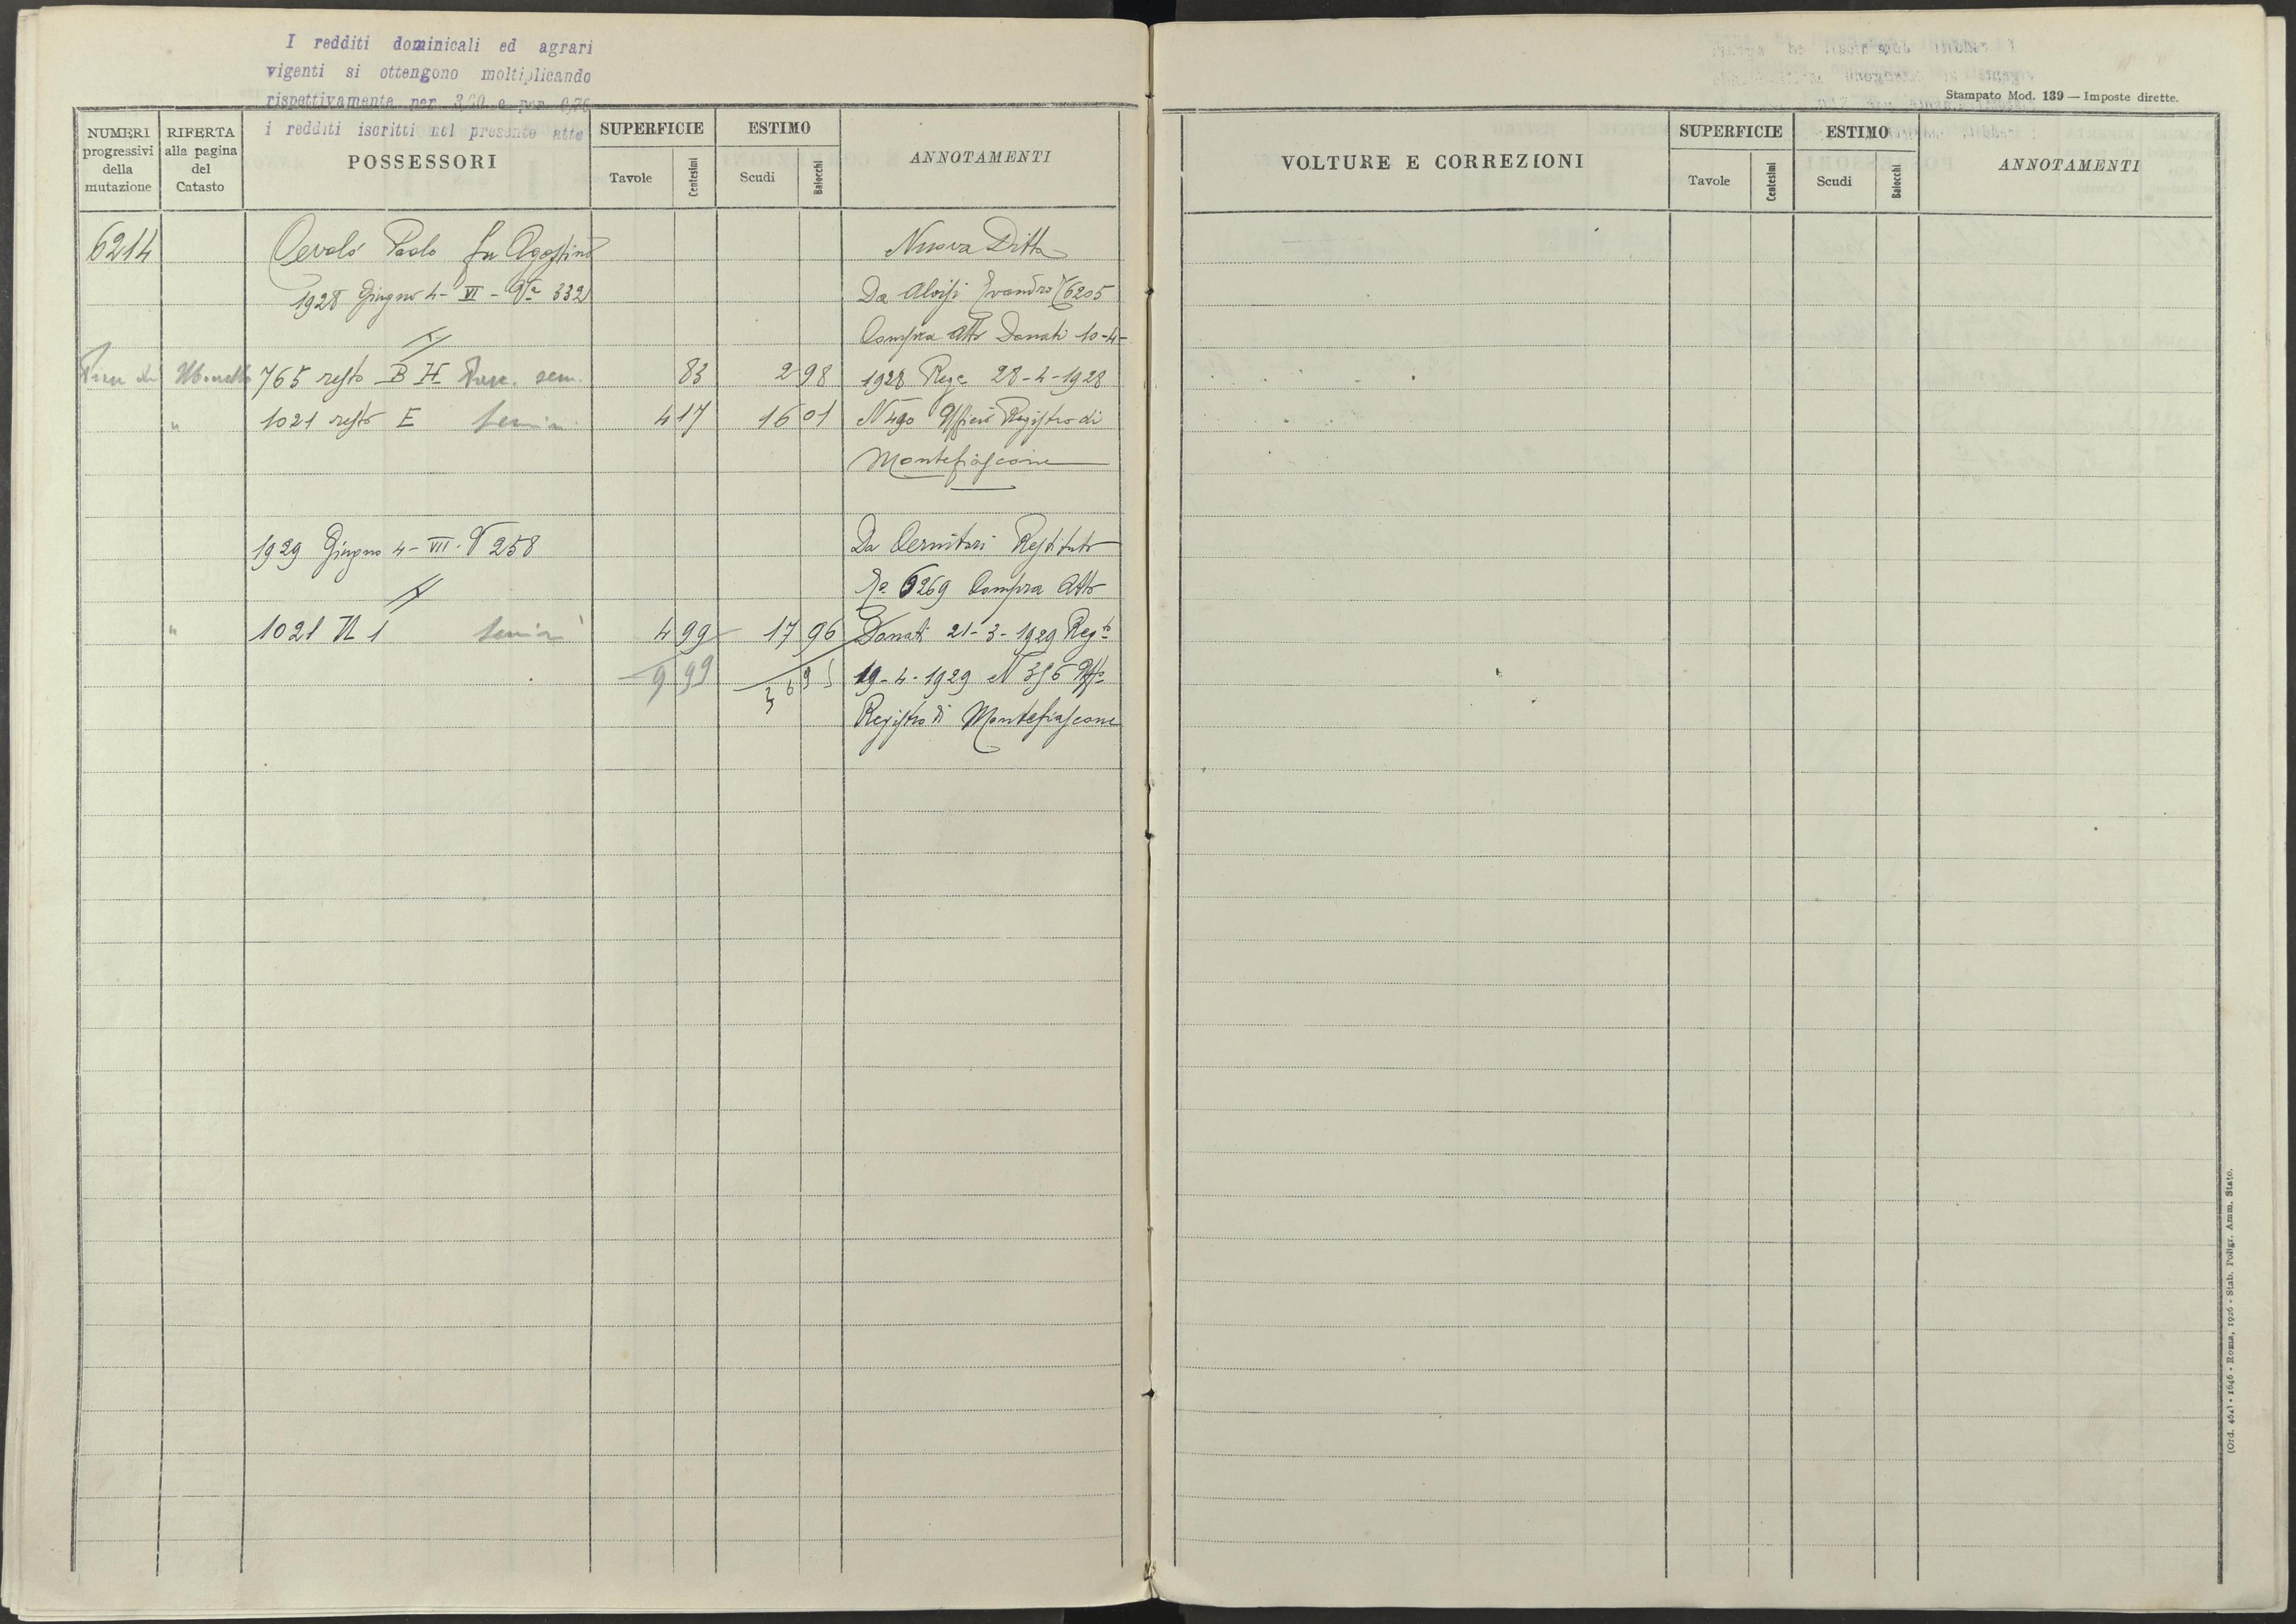 I redditi dominicali ed agrari
vigenti si ottengono moltiplicando
rispettivamente per 3,60 e per 0,76
i redditi iscritti nel presente atto
NUMERI progressivi della mutazione
RIFERTA alla pagina del Catasto
POSSESSORI
SUPERFICIE
Tavole
Centesimi
ESTIMO
Scudi
Baiocchi
ANNOTAMENTI
6214 Cevolò Paolo fu Agostino Nuova Ditta
1928 Giugno 4 - VI - Va 332 Da Aloisi Evandro 6205
Compra Atto Donati 10-4-
765 resto B H Pasc. sem. 83 2 98 1928 Rege 28-4-1928
" 1021 resto E Semin. 4 17 16 01 N 490 Ufficio Registro di
Montefiascone
1929 Giugno 4 - VII. V 258 Da Cernitori Restituto
Ra 6269 Compra Atto
" 1021 N 1 Semin 4 99 17 96 Donati 21-3-1929 Regto
9 99 36 95 19-4-1929 N 356 Uffo
Registro di Montefiascone
Stampato Mod. 139 — Imposte dirette.
VOLTURE E CORREZIONI
SUPERFICIE
Tavole
Centesimi
ESTIMO
Scudi
Baiocchi
ANNOTAMENTI
(Ord. 464) - 1646 - Roma, 1926 - Stab. Poligr. Amm. Stato.